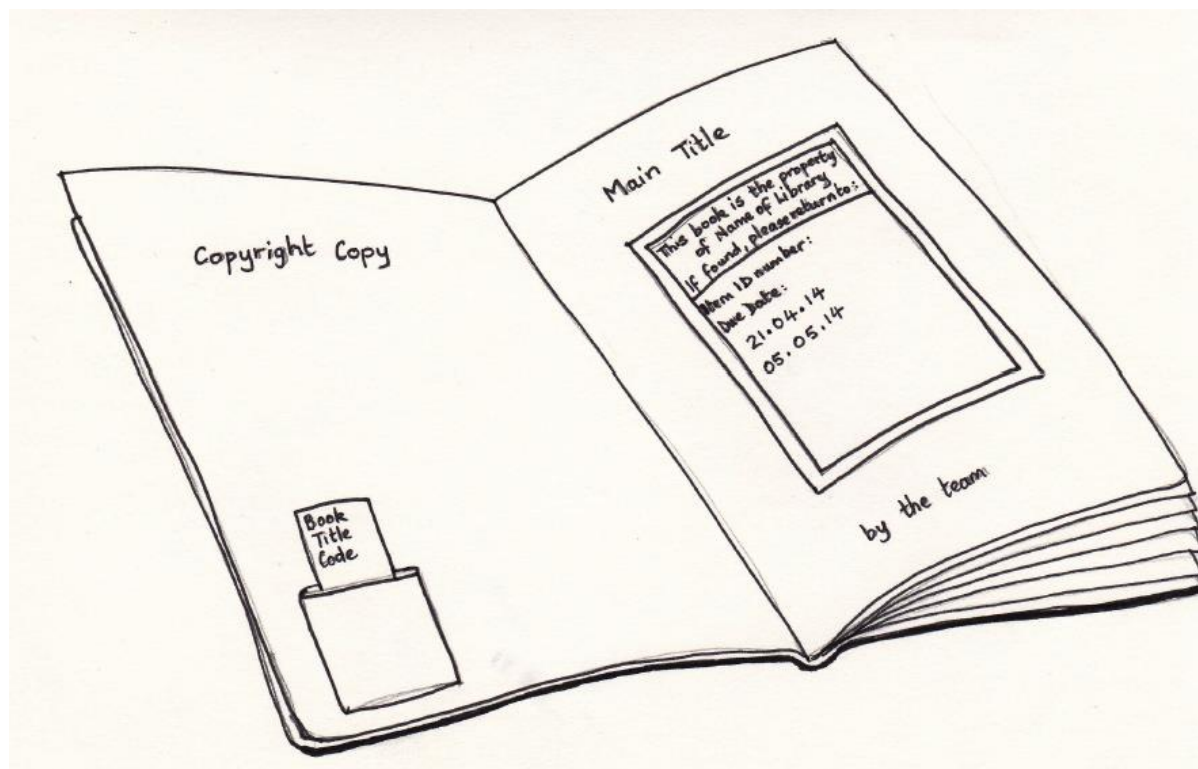 Copyright Copy
Book
Title
Code
Main Title
This book is the property
of Name of Library
If found, please return to:
Item ID number:
Due Date:
21.04.14
05.05.14
by the team